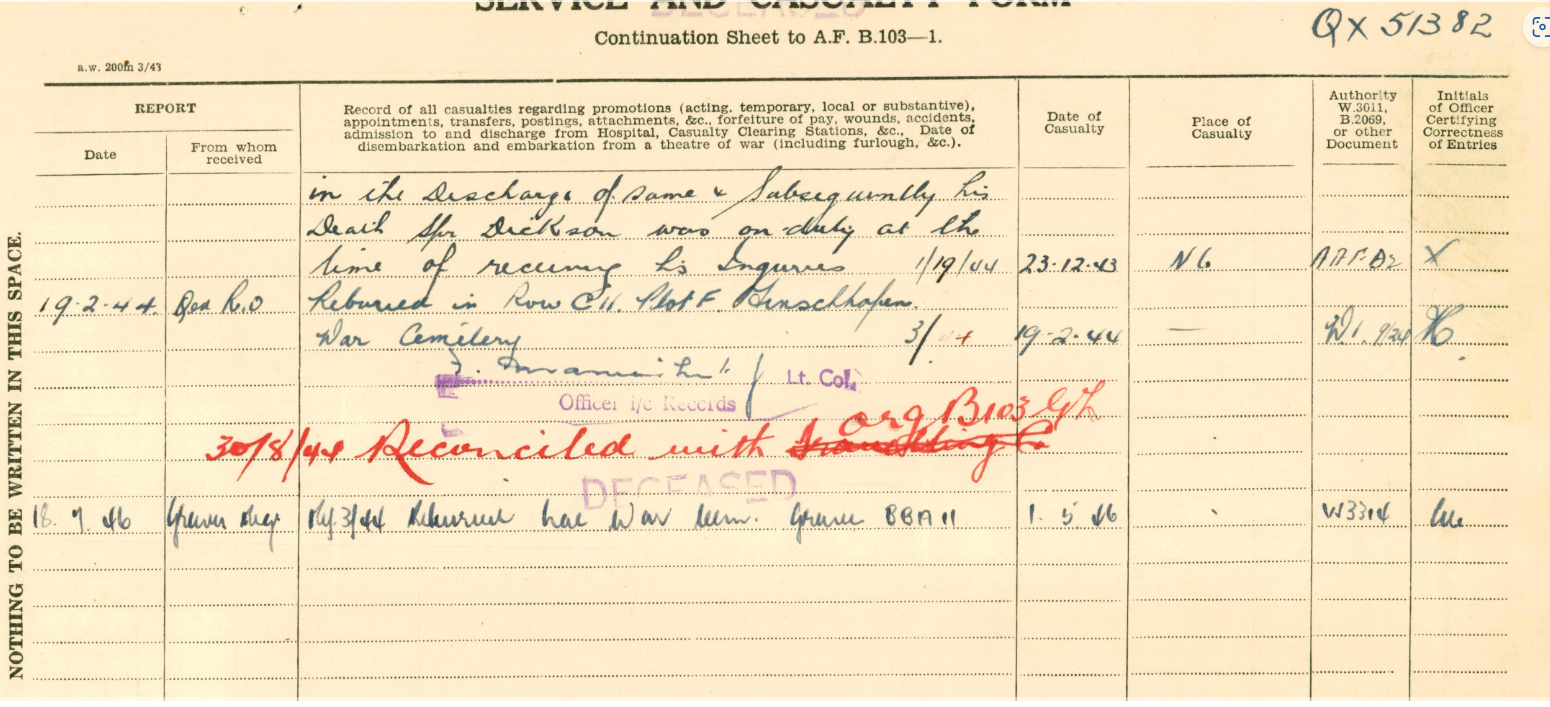 SERVICE AND CASUALTY FORM
DECEASED
Continuation Sheet to A.F. B.103—1.
QX 51382
a.w. 200m 3/43
REPORT
Date
From whom received
Record of all casualties regarding promotions (acting, temporary, local or substantive),
appointments, transfers, postings, attachments, &c., forfeiture of pay, wounds, accidents,
admission to and discharge from Hospital, Casualty Clearing Stations, &c., Date of
disembarkation and embarkation from a theatre of war (including furlough, &c.).
Date of
Casualty
Place of
Casualty
Authority
W.3011,
B.2069,
or other
Document
Initials
of Officer
Certifying
Correctness
of Entries
NOTHING TO BE WRITTEN IN THIS SPACE.
in the Discharge of same & Subsequently his
Death Spr Dickson was on duty at the
time of receiving his Injuries 1/19/44 23-12-43 NG X
19-2-44. R.O Reburied in Row Plot F.
War Cemetery 3/ 19-2-44 —
Lt. Col.
Officer i/c Records
org B103
30/8/44 Reconciled with
DECEASED
18. 7. 46 3/44 Reburied Lae War Cem. Grave BBA 11 1. 5 46 W3314